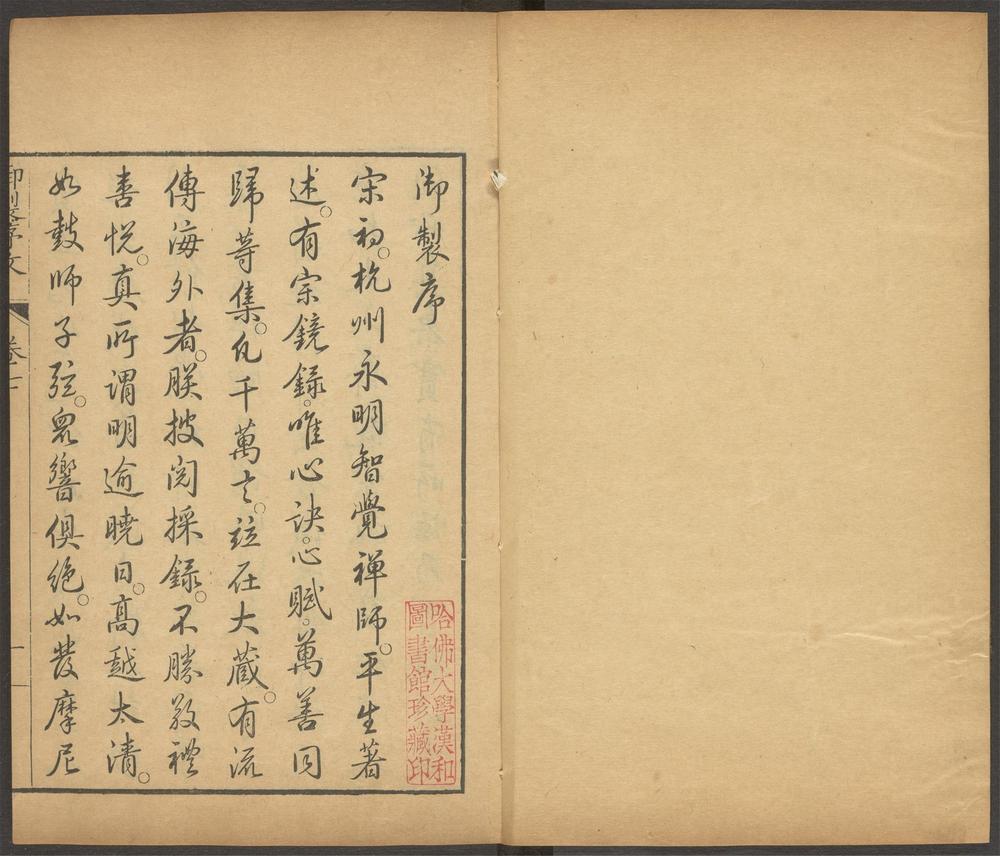 御製序
宋初。杭州永明智覺禪師。平生著
述。有宗鏡録。唯心訣。心賦。萬善同
歸䓁集。凡千萬言。竝在大藏。有流
傳海外者。朕披閲採録。不勝敬禮
喜悦。真所謂明逾曉日。高越太清。
如鼓師子弦。衆響俱絶。如發摩尼
序文
卷十
一
哈佛大學漢和
圖書館珍藏印